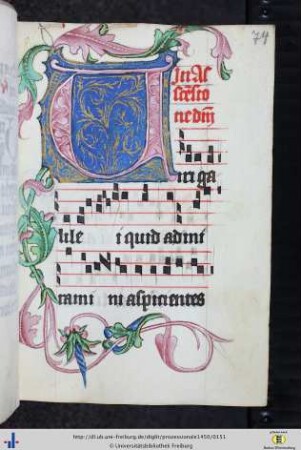 74
In As
cēsio
ne dm̄
Uiri ga
lile i quid admi
rami ni aspicientes
http://dl.ub.uni-freiburg.de/diglit/prozessionale1450/0151
© Universitätsbibliothek Freiburg